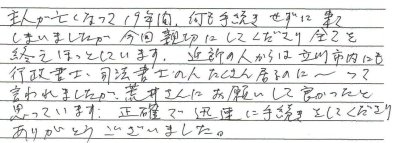 主人が亡くなって19年間、何も手続きせずに来て
しまいましたが今回親切にしてくださり全てを
終えほっとしています。近所の人からは立川市内にも
行政書士、司法書士の人たくさん居るのに〜って
言われましたが、荒井さんにお願いして良かったと
思っています。正確で迅速に手続きをしてくださり
ありがとうございました。